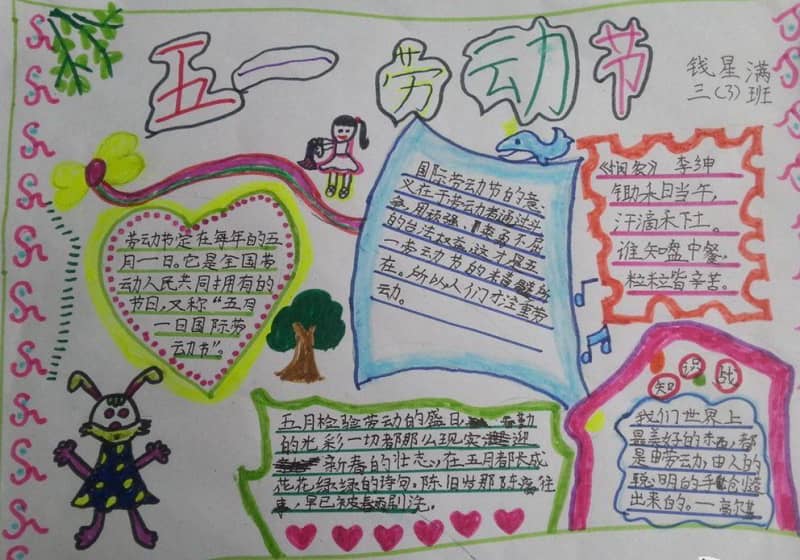 五一劳动节
钱星满
三(3)班
劳动节定在每年的五
月一日。它是全国劳
动人民共同拥有的
节日,又称“五月
一日国际劳
动节”。
国际劳动节的意
义在于劳动者通过斗
争,用顽强、不屈
的合法权益,这才是五
一劳动节的
在。所以人们才注重劳
动。
《悯农》 李绅
锄禾日当午,
汗滴禾下土。
谁知盘中餐,
粒粒皆辛苦。
五月检验劳动的盛日 勤
的光彩一切都那么现实 迎
新春的壮志,在五月都长成
花花绿绿的诗句。陈旧 那 往
事,早已被 刷洗。
知识战
我们世界上
最美好的东西,都
是由劳动,由人的
聪明的手创造
出来的。——高尔基